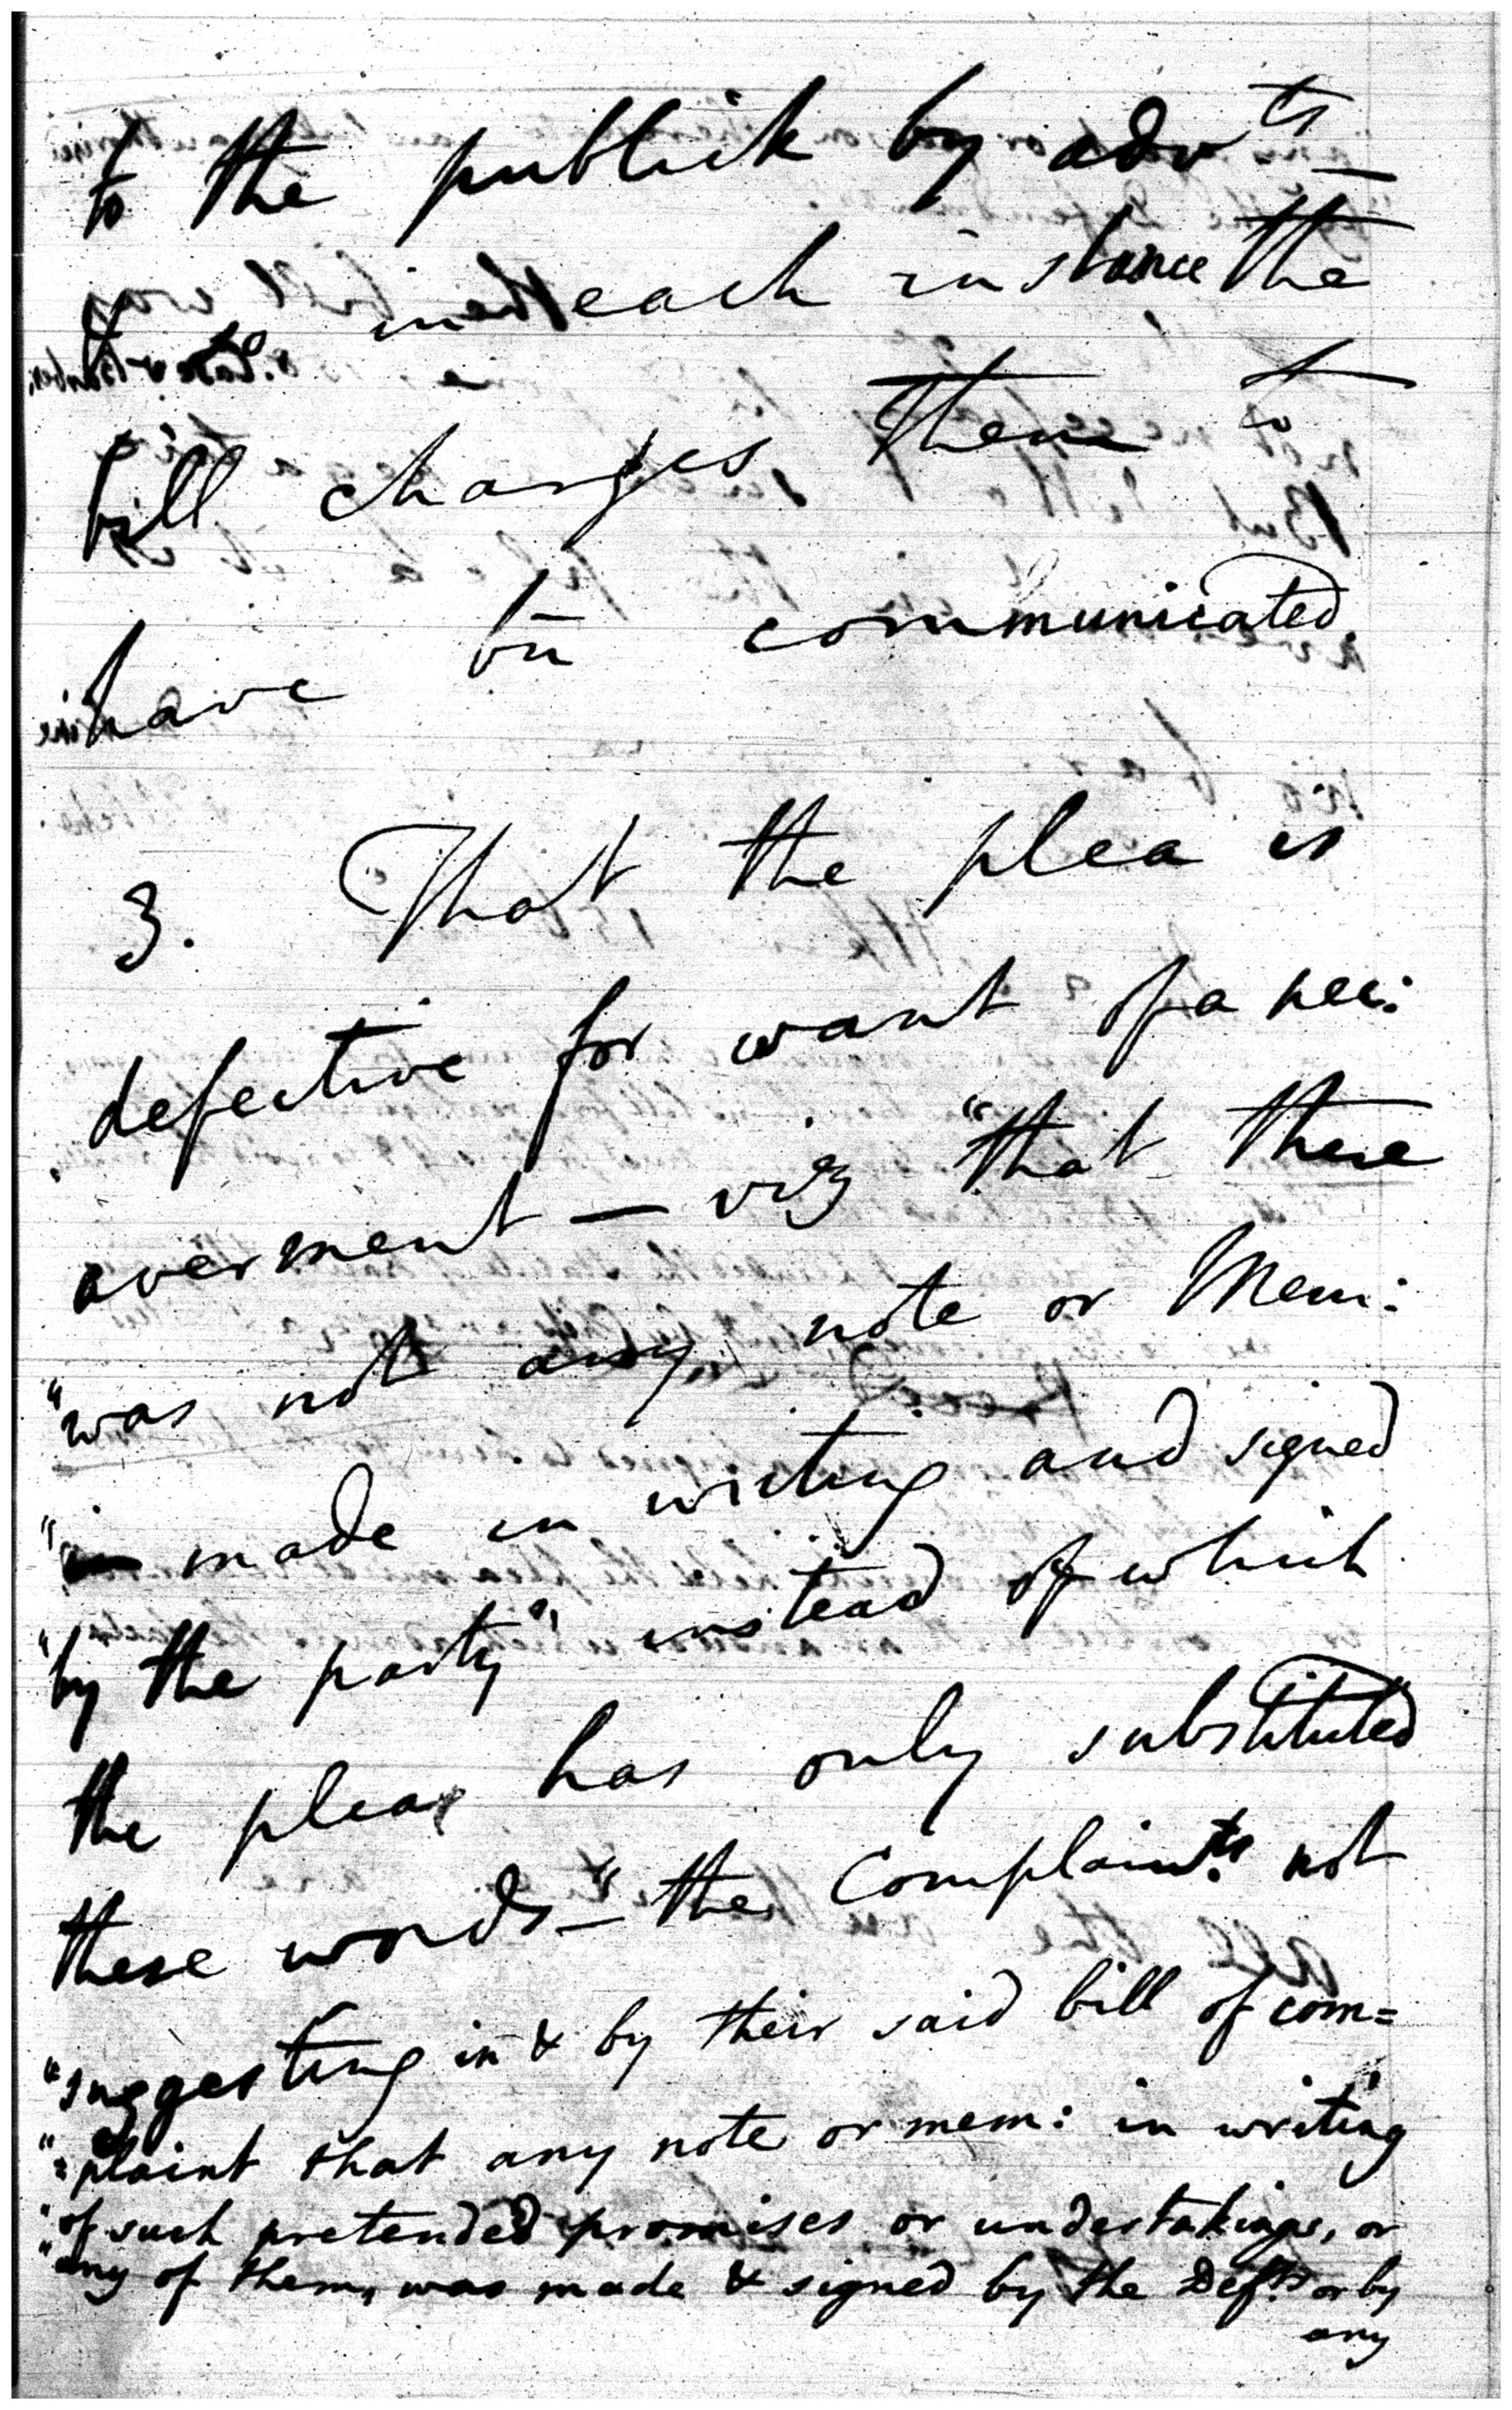 to the publick by advts
to in each instance the
bill charges them to
have bn communicated
3. That the plea is
defective for want of a nec:
averment — viz "that there
"was not any note or Mem:
"made in writing and signed
"by the party" instead of which
the plea has only substituted
these words — "the Complaints. not
"suggesting in & by their said bill of com=
"=plaint that any note or mem: in writing
"of such pretended promises or undertakings, or
"any of them, was made & signed by the Defts. or by
any